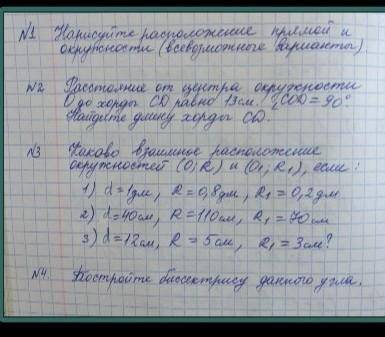 №1 Нарисуйте расположение прямой и
окружности (всевозможные варианты).
№2 Расстояние от центра окружности
О до хорды CD равно 13см. ∠COD = 90°
Найдите длину хорды CD.
№3 Каково взаимное расположение
окружностей (O; R) и (O₁; R₁), если:
1) d = 1дм, R = 0,8дм, R₁ = 0,2дм
2) d = 40см, R = 110см, R₁ = 70см
3) d = 12см, R = 5см, R₁ = 3см?
№4. Постройте биссектрису данного угла.